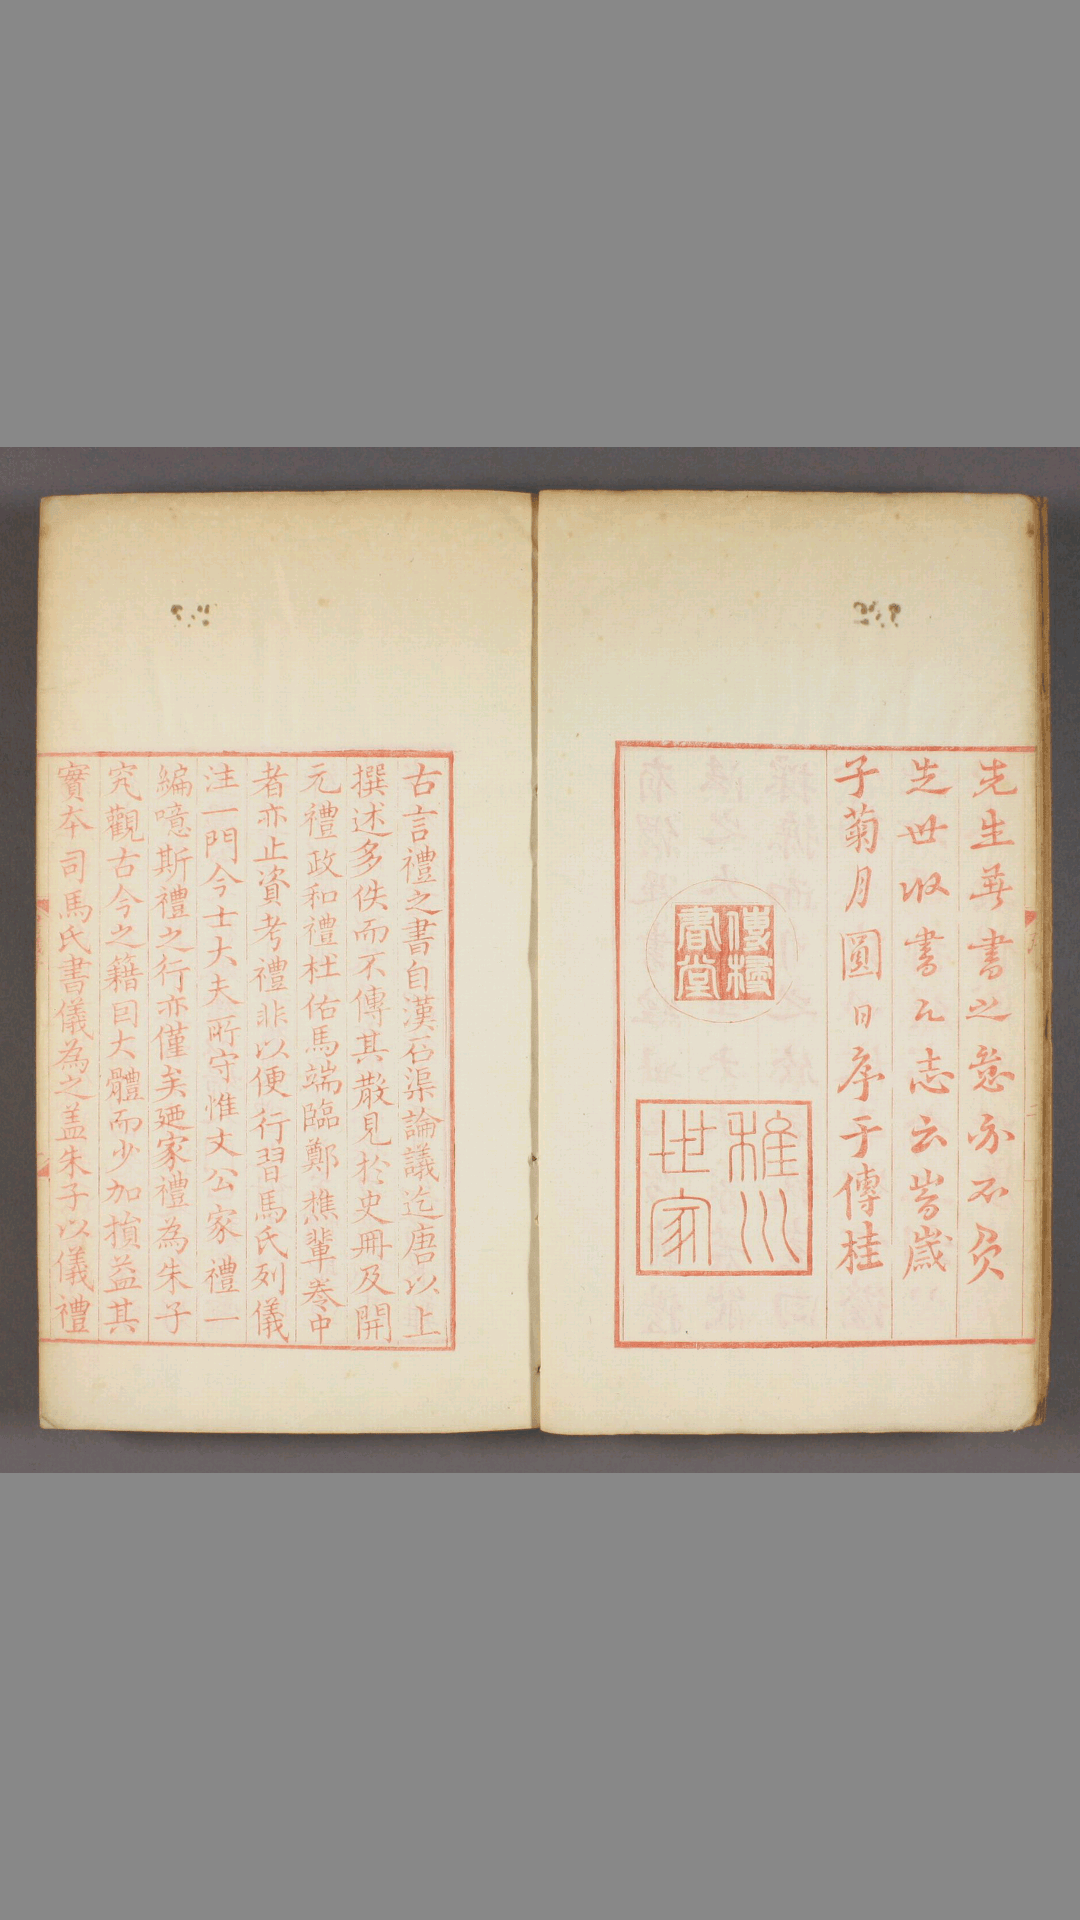 先生無書之意亦不負
先世収書之志云峕歲
子菊月圓日序于傳桂
書堂
稚川世家
古言禮之書自漢石渠論議迄唐以上
撰述多佚而不傳其散見於史冊及開
元禮政和禮杜佑馬端臨鄭樵輩卷中
者亦止資考禮非以便行習馬氏列儀
注一門今士大夫所守惟文公家禮一
編噫斯禮之行亦僅矣廼家禮為朱子
究觀古今之籍因大體而少加損益其
實本司馬氏書儀為之盖朱子以儀禮